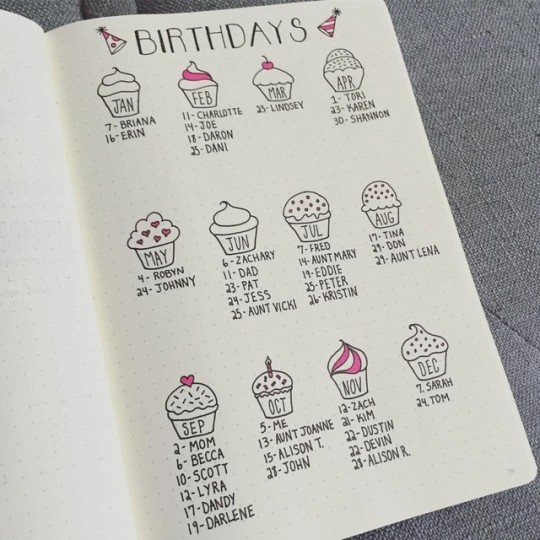 BIRTHDAYS
JAN
7- BRIANA
16- ERIN
FEB
11- CHARLOTTE
14- JOE
18- DARON
25- DANI
MAR
23- LINDSEY
APR
1- TORI
23- KAREN
30- SHANNON
MAY
4- ROBYN
24- JOHNNY
JUN
6- ZACHARY
11- DAD
23- PAT
24- JESS
25- AUNT VICKI
JUL
7- FRED
14- AUNT MARY
19- EDDIE
25- PETER
26- KRISTIN
AUG
17- TINA
29- DON
29- AUNT LENA
SEP
2- MOM
6- BECCA
10- SCOTT
12- LYRA
17- DANDY
19- DARLENE
OCT
5- ME
13- AUNT JOANNE
15- ALISON T.
28- JOHN
NOV
12- ZACH
21- KIM
22- DUSTIN
22- DEVIN
28- ALISON R.
DEC
7. SARAH
24. TOM